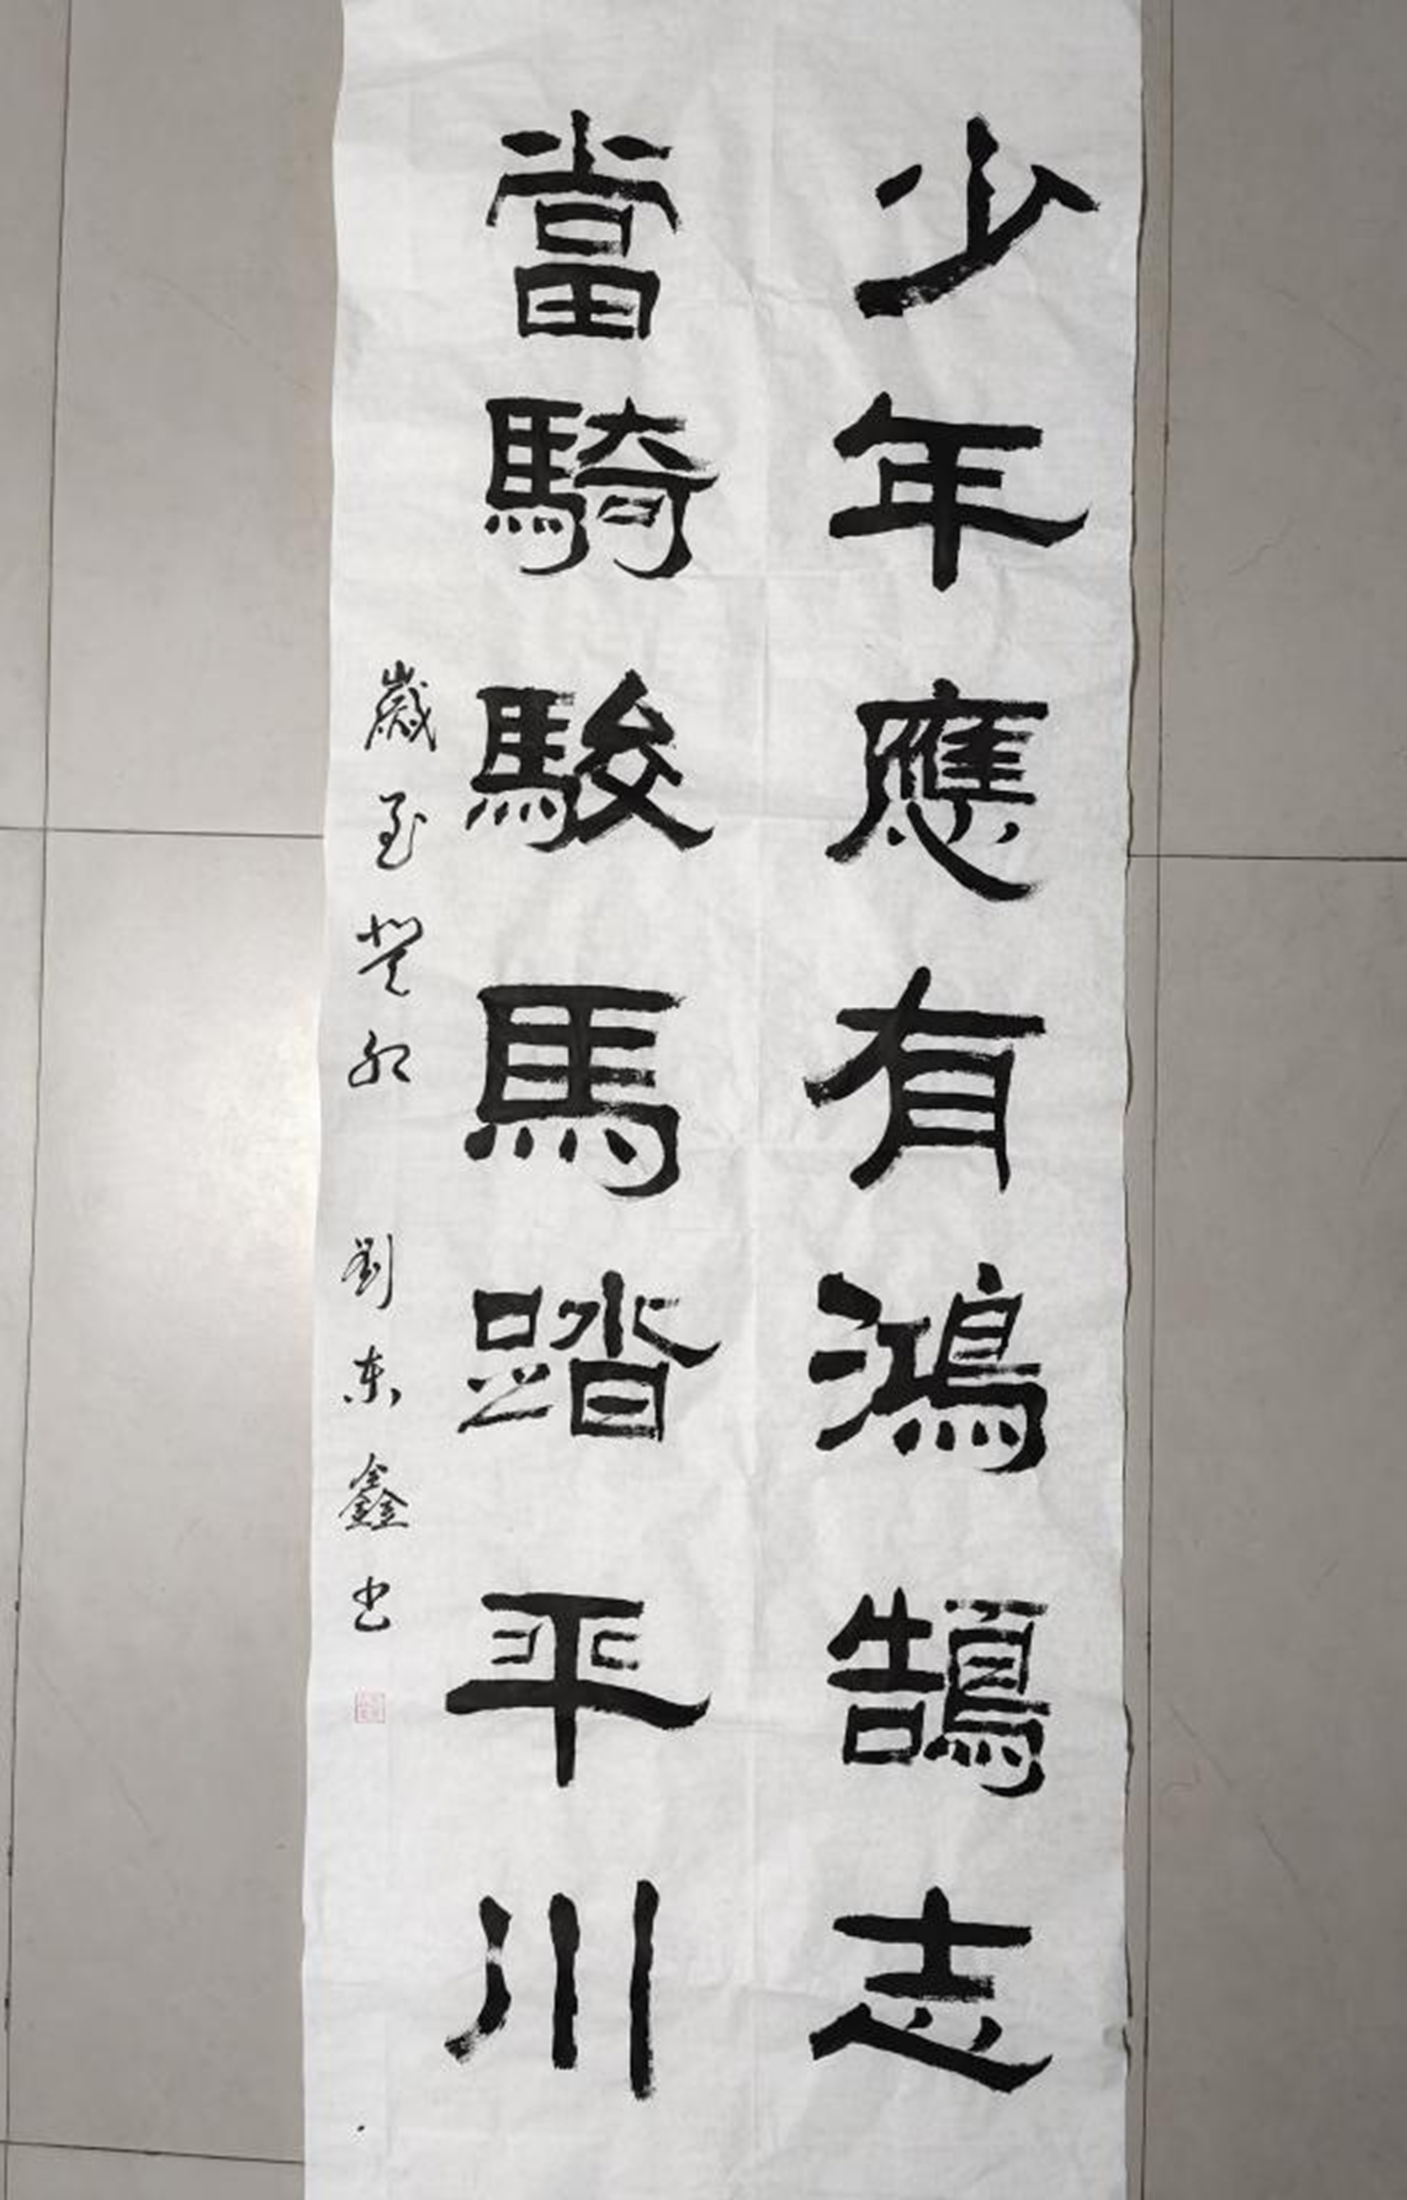 少年應有鴻鵠志
當騎駿馬踏平川
歲至癸卯 劉东鑫书